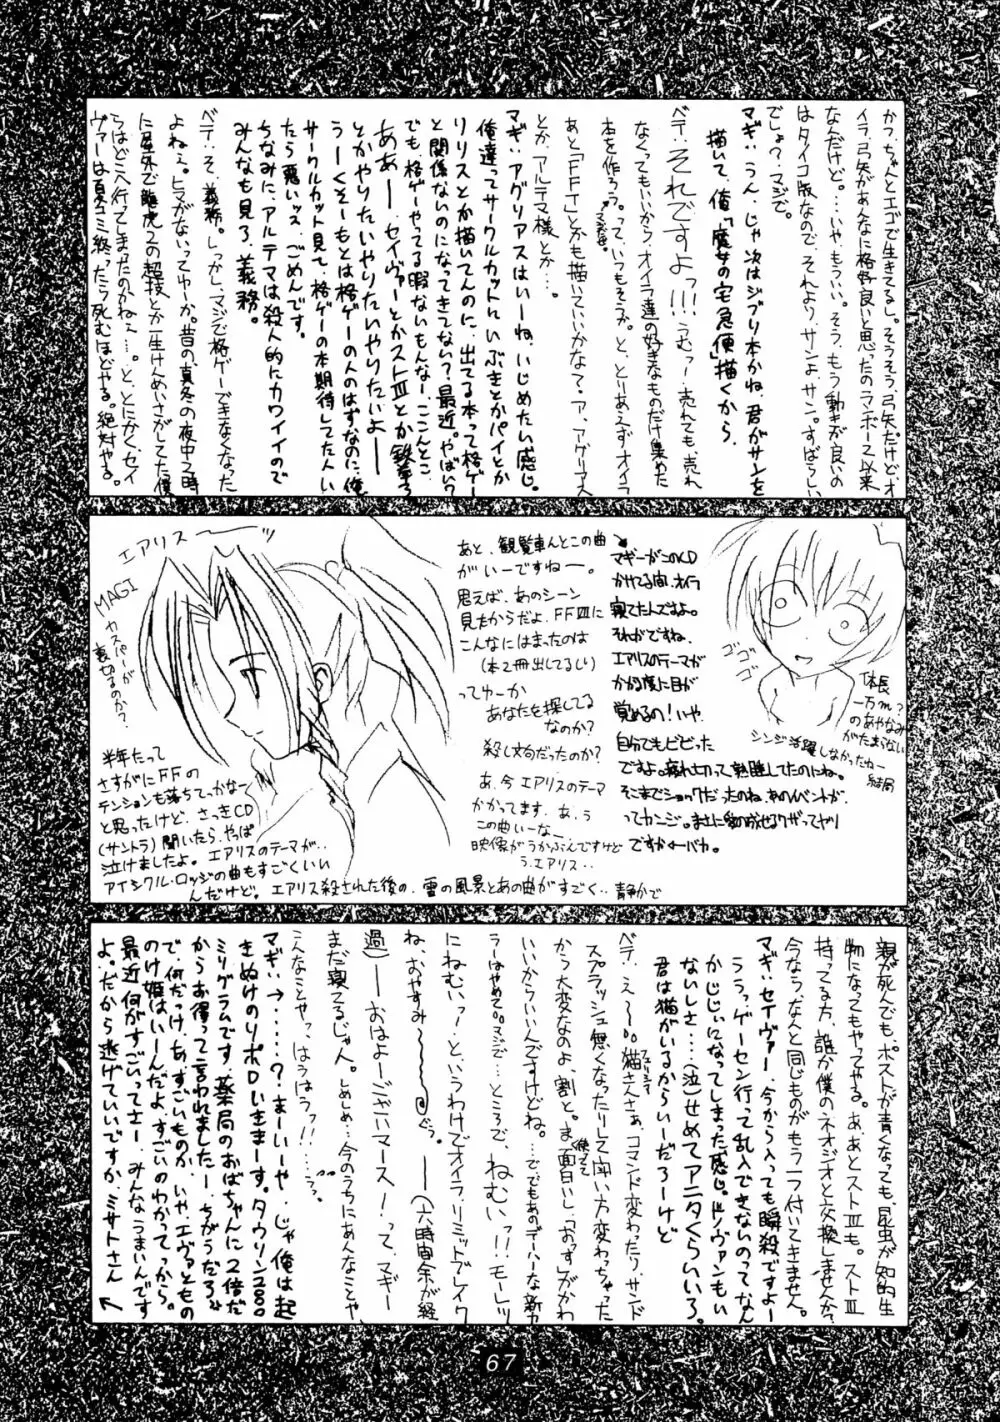 かつ、ちゃんとエゴで生きてるし。そうそう、弓矢だけどオ
イラ、弓矢があんなに格好良いと思ったのランボー以来
なんだけど…。いや、もういい。そう、もう動きが良いの
はタイコ版なので、それよりサンよサン。すばらしい
でしょ？マジで。
マギ：うん、じゃ次はジブリ本かね、君がサンを
描いて、俺「魔女の宅急便」描くから。
ベテ：それですよっ!!!うむっ！売れても売れ
なくてもいいから、オイラ達の好きなものだけ集めた
本を作ろう。って、いつもそうか。と、とりあえずオイラ
あと「FFT」とかも描いていいかなぁ？ア、アグリアス
とか、アルテマ様とか…。
マギ：アグリアスはいーね、いじめたい感じ。
俺達ってサークルカットにいぶきとかパイとか
リリスとか描いてんのに、出てる本って格ゲー
と関係ないのになってきてない？最近。やばい？
でも格ゲーやってる暇ないもんなー、ここんとこ。
ああー、セイヴァーとかストⅢとか鉄拳3
とかやりたいやりたいやりたいよー
うーくそーもとは格ゲーの人のはずなのに、俺
サークルカット見て、格ゲーの本期待してた人い
たら悪いッス、ごめんです。
ちなみに、アルテマは殺人的にカワイイので
みんなも見ろ、義務。
ベテ：そ、義務。しかし、マジで格ゲーできなくなった
よねぇ。ヒマがないってゆーか。昔の、真冬の夜中2時
に屋外で龍虎2の超技とか一生けんめいさがしてた僕
らはどこへ行ってしまったのかねぇ…。と、とにかく、セイ
ヴァーは夏コミ終ったら死むほどやる。絶対やる。
エアリス
MAGI
カスパーが
裏切るのか？
半年たって
さすがにFFの
テンションも落ちてっかなー
と思ったけど、さっきCD
(サントラ)聞いたら、やっぱ
泣けましたよ。エアリスのテーマが‥
アイシクル・ロッジの曲もすごくいい
んだけど。エアリス殺された後の、雪の風景とあの曲がすごく‥静かで
あと、観覧車んとこの曲
がいーですねー。
思えば、あのシーン
見たからだよ、FFⅦに
こんなにはまったのは
(本2冊出してるしい)
ってゆーか
あなたを探してる
なのか？
殺し文句だったのか？
あ、今エアリスのテーマ
かかってます、あぅ
この曲いーなー
映像がうかぶんですけど
う、エアリス‥
マギーがこのCD
かけてる間、オイラ
寝てたんですよ。
それがですね、
エアリスのテーマが
かかる度に目が
覚めるの！いや、
自分でもビビった
ですよ。疲れ切って熟睡してたのにね。
そこまでショックだったのね、あのイベントが、
ってカンジ。
ですかーバカ。
ゴゴゴ
「体長
一万m？
のあやなみ
がたまらない
シンジ活躍しなかったねー
結局
親が死んでも、ポストが青くなっても、昆虫が知的生
物になってもやってやる。ああとストⅢも。ストⅢ
持ってる方、誰か僕のネオジオと交換しませんか？
今なら、なんと同じものがもう一つ付いてきません。
マギ：セイヴァー、今から入っても瞬殺ですよー
ううっ、ゲーセン行って乱入できないのってなん
かじじいになってしまった感じ。ドノヴァンもい
ないしさ…、(泣)せめてアニタくらいいろ。
君は猫がいるからいーだろーけど
ベテ：え〜。猫さんさぁ、コマンド変わったり、サンド
フェリシア
スプラッシュ無くなったりして闘い方変わっちゃった
から大変なのよ、割と。ま、面白いし、おっすしがかわ
いいからいいんですけどね。…でもあのデーハーな新カ
ラーはやめて。マジで…ところで、ねむいっ!!!モーレツ
にねむいっ！と、いうわけでオイラ、リミットブレイク
ね、おやすみ〜〜〜ぐぅ。――(六時間余が経
過)――おはよーじゃいマース！って、マギー
まだ寝てるじゃん。しめしめ…今のうちにあんなことや
こんなことやっ、はうはうっ!!……
マギ：→……？まーいーや、じゃ俺は起
きぬけのリポDいきまーす。タウリン2000
ミリグラムです、薬局のおばちゃんに2倍だ
からお得って言われましたー、ちがうだろ
で、何だっけ、あ、すごいものか、いや、エヴァともの
のけ姫はいーんだよ、すごいのわかってっから。
最近何がすごいってさー、みんなうまいんです
よ。だから逃げていいですか、ミサトさん
67